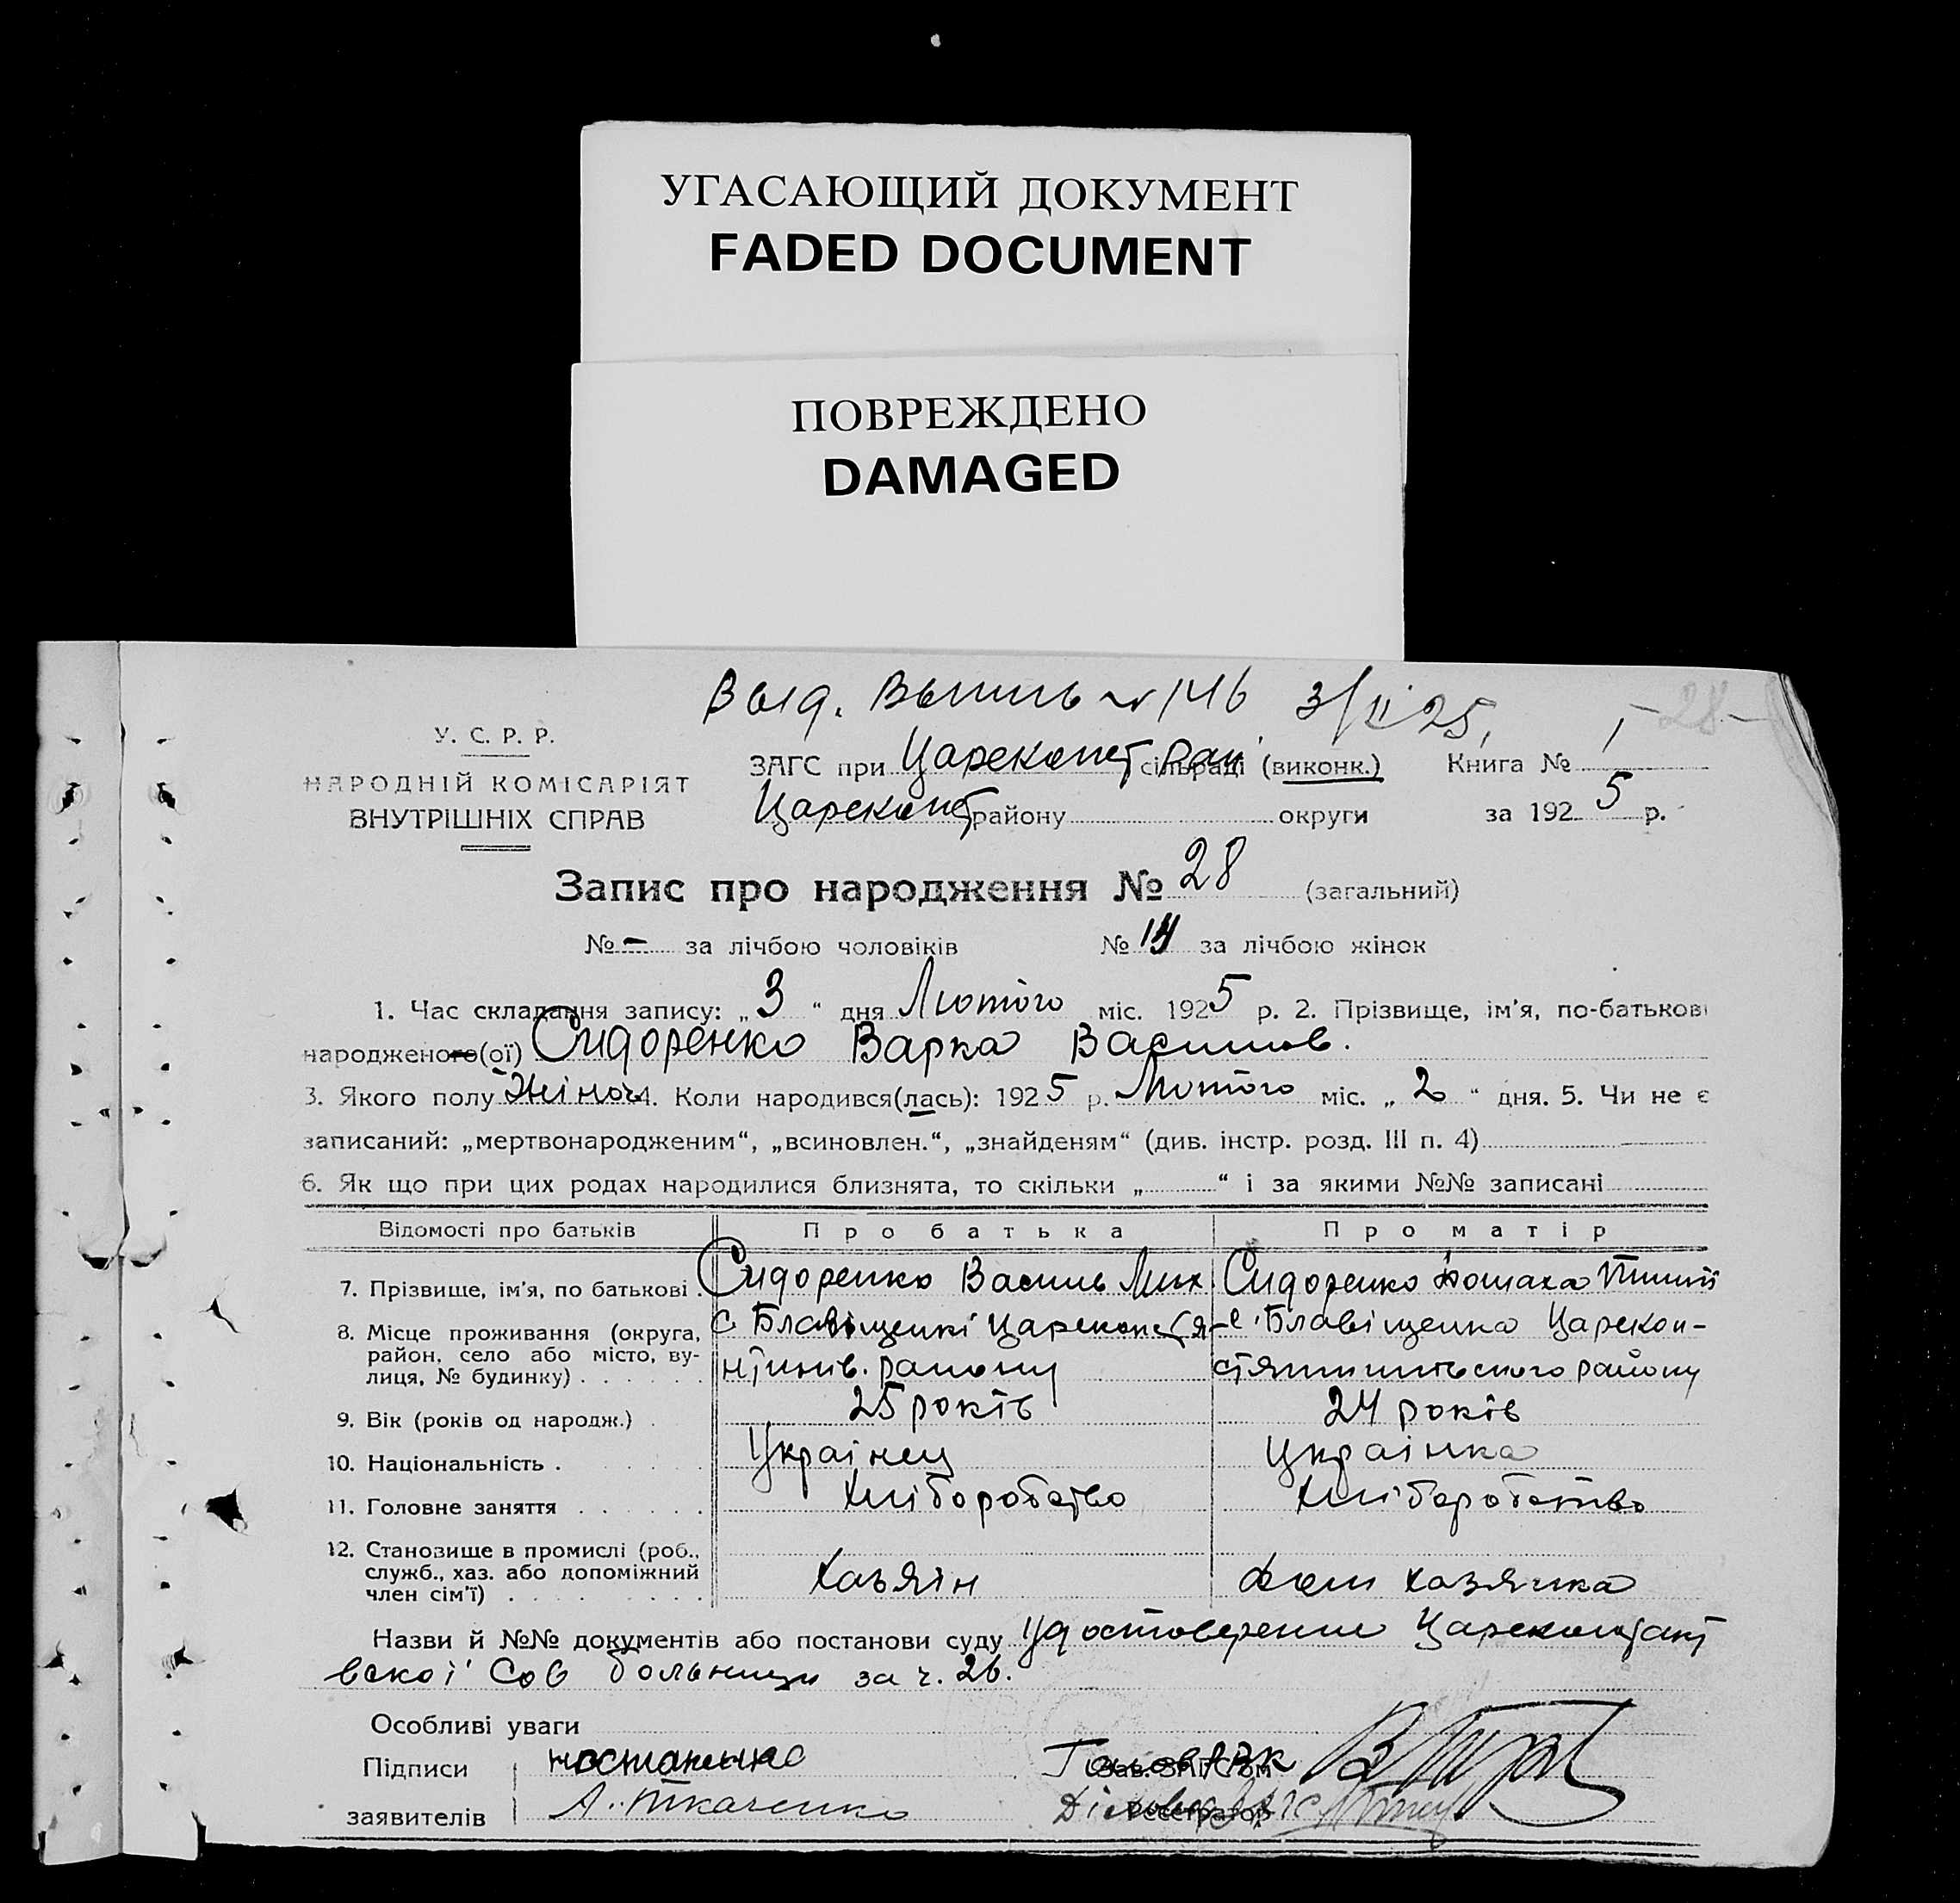 УГАСАЮЩИЙ ДОКУМЕНТ
FADED DOCUMENT
ПОВРЕЖДЕНО
DAMAGED
Выд. Выпись № 146 3/II 25,
-28-
У. С. Р. Р.
НАРОДНІЙ КОМІСАРІЯТ
ВНУТРІШНІХ СПРАВ
ЗАГС при Цареконст рай сільраді (виконк.) Книга № 1
Цареконст району округи за 1925 р.
Запис про народження № 28 (загальний)
№ - за лічбою чоловіків № 14 за лічбою жінок
1. Час складання запису: „3“ дня Лютого міс. 1925 р. 2. Прізвище, ім'я, по-батькові
народженого(ої) Сидоренко Варка Василів.
3. Якого полу Жіноч 4. Коли народився(лась): 1925 р. Лютого міс. „2“ дня. 5. Чи не є
записаний: „мертвонародженим“, „всиновлен.“, „знайденям“ (див. інстр. розд. III п. 4)
6. Як що при цих родах народилися близнята, то скільки „ “ і за якими №№ записані
Відомості про батьків Про батька Про матір
7. Прізвище, ім'я, по батькові . Сидоренко Василь Мих. Сидоренко
8. Місце проживання (округа, район, село або місто, вулиця, № будинку) . . . . . .
с Блавіщенкі Цареконстя-
нтинів. району
с. Блавіщенка Царекон-
стянтинівського району
9. Вік (років од народж.) . 25 років 24 років
10. Національність . Українец Українка
11. Головне заняття . . . . . . Хліборобство Хліборобство
12. Становище в промислі (роб., служб., хаз. або допоміжний член сім'ї) . . . . . . Хазяїн дом хазяйка
Назви й №№ документів або постанови суду Удостоверение Цареконстант
вскої Сов больници за ч. 26.
Особливі уваги
Підписи
заявителів
А. Ткаченко
Голова РВК
Зав. ЗАГС'ом
Реєстратор